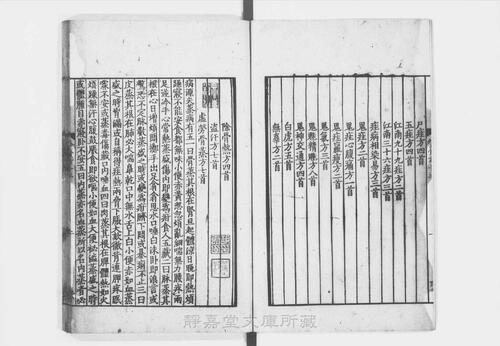 尸疰方四首
五疰方四首
江南九十九疰方二首
江南三十六疰方三首
疰病相染易方二首
鬼疰方二首
鬼氣方三首
鬼魅精魅方八首
鬼神交通方四首
白虎方五首
無辜方二首
除骨熱方四首
盜汗方七首
虛勞骨蒸方七首
病源夫蒸病有五一曰骨蒸其根在腎旦起體涼日晚即熱煩
躁寢不能安食都無味小便赤黃忽忽煩亂細喘無力腰疼兩
足逆冷手心常熱蒸盛傷內則變為疳食人五臟二曰脉蒸其
根在心日增煩悶擲手出足翕翕思水口唾白沫睡即浪言或
驚恐不定脉數若蒸盛之時或變為疳臍下悶或暴痢不止三曰
皮蒸其根在肺必大喘鼻乾口中無水舌上白小便赤如血蒸
盛之時胷滿或自稱得疰熱兩脅下脹大嗽徹背連胛疼眠
寐不安或蒸毒傷臟口內唾血四曰肉蒸其根在脾體熱如火
煩躁無汗心腹鼓脹食即欲嘔小便如血大便秘澀蒸盛之時
或體腫目赤寢卧不安五曰內蒸亦名血蒸所以名內蒸者必
静嘉堂文庫所蔵